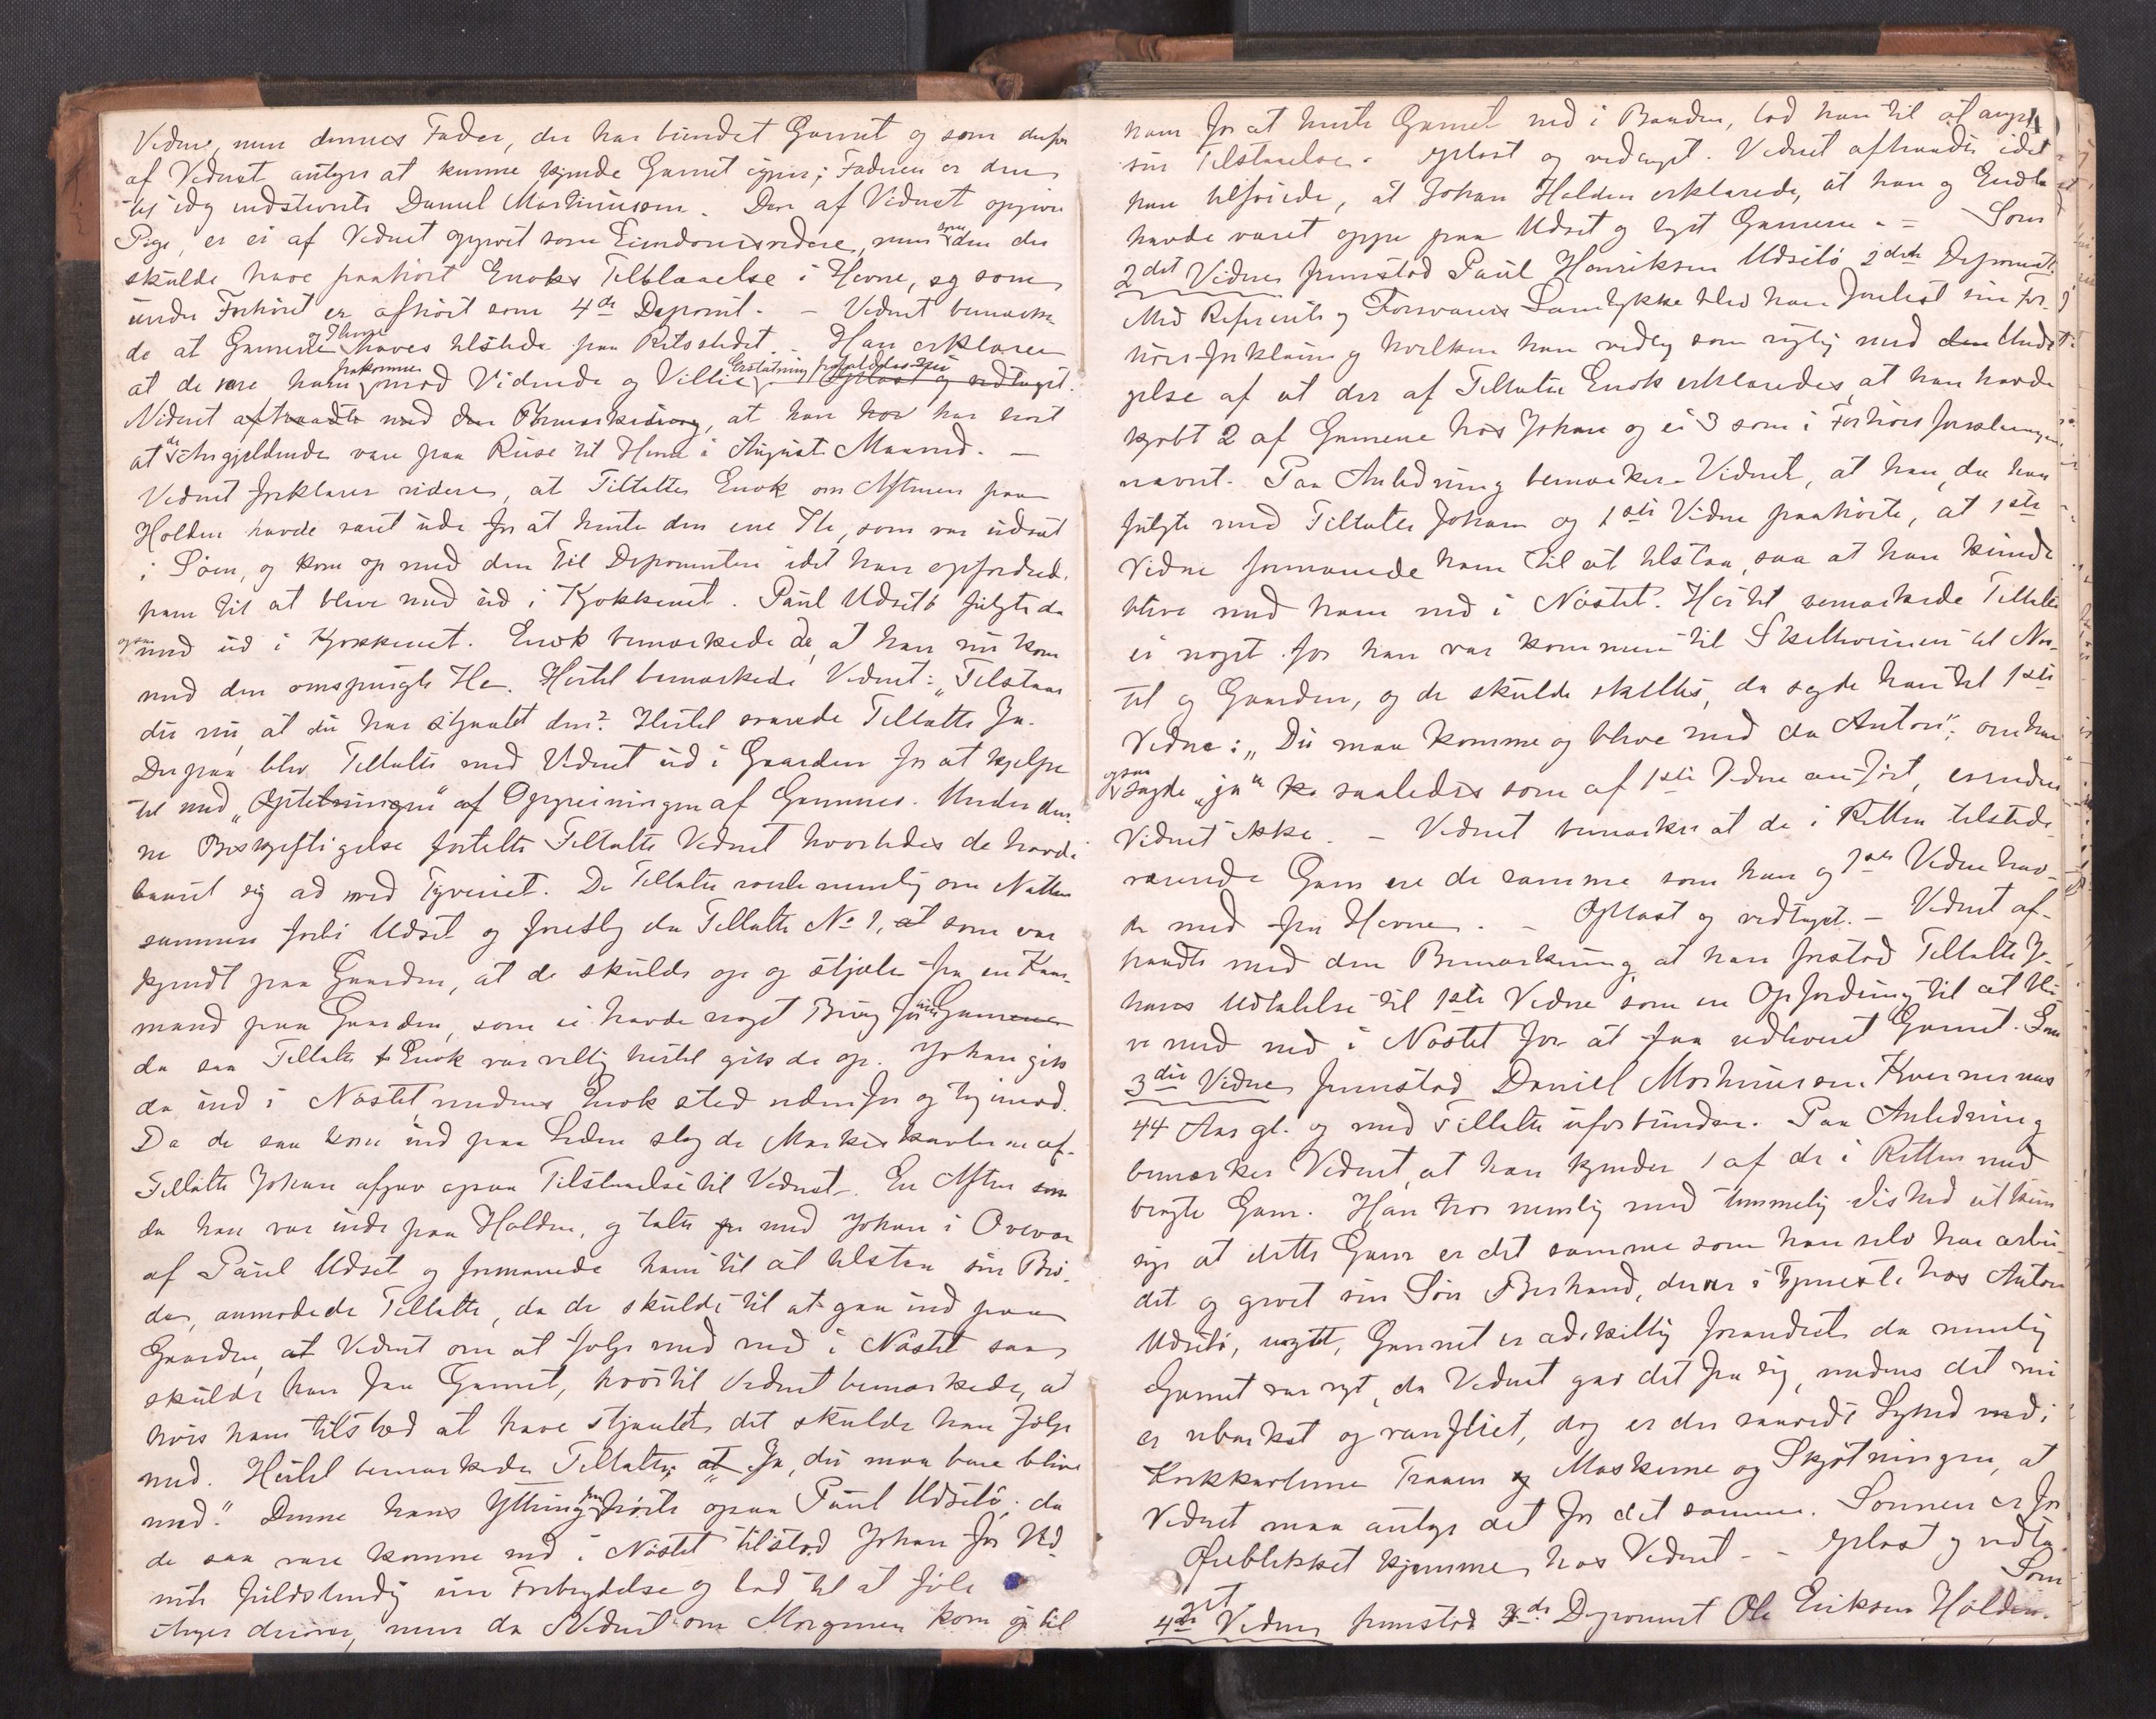 Vidne, men dennes Fader, der har bundet Garnet og som derfor
af Vidnet antages at kunne kjende Garnet igjen; Faderen er den
til idag indstevnte Daniel Martinussen. Den af Vidnet opgivne
Pige, er ei af Vidnet opgivet som Eiendomsvidere, men som den der
skulde have paahørt Enoks Tilstaaelse i Hevne, og som
under Forhøret er afhørt som 4de Deponent. - Vidnet bemærke-
de at Garnene og Ilerne haves tilstede paa Retsstedet. Han erklærer
at de ere ham frakomne mod Vidende og Villie. Erstatning frafaldes. Oplæst og vedtaget.
Vidnet aftraadte med den Bemærkning, at han har hørt
at de Angjældende vare paa Reise til Hevne i August Maaned. -
Vidnet forklarer videre, at Tiltalte Enok om Aftenen paa
Holden havde været ude for at hente den ene Ile, som var udsat
i Søen, og kom op med den til Deponenten idet han opfordred.
ham til at blive med ud i Kjøkkenet. Paul Udsetø fulgte da
ogsaa med ud i Kjøkkenet. Enok bemærkede da, at han nu kom
med den omspurgte Ile. Hertil bemærkede Vidnet: "Tilstaar
du nu, at du har stjaalet den? Hertil svarede Tiltalte Ja.
Derpaa blev Tiltalte med Vidnet ud i Gaarden for at hjelpe
til med Opgreiningen af Garnene. Under den-
ne Beskjeftigelse fortalte Tiltalte Vidnet hvorledes de havde
baaret sig ad med Tyveriet. De Tiltalte roede nemlig om Natten
sammen forbi Udset og foreslog da Tiltalte No 1, at som var
kjendt paa Gaarden, at de skulde op og stjæle fra en Kaar-
mand paa Gaarden, som ei havde noget Brug for sine Garn
da saa Tiltalte Enok var villig hertil gik de op. Johan gik
da ind i Nøstet medens Enok stod udenfor og tog imod.
Da de saa kom ind paa Leden slog de Mærkeskavlerne af.
Tiltalte Johan afgav ogsaa Tilstaaelse til Vidnet. En Aften som
da han var inde paa Holden, og talte med Johan i Overvær
af Paul Udset og formanede ham til at tilstaa sin Brø-
de, anmodede Tiltalte, da de skulde til at gaa ind paa
Gaarden, at Vidnet om at følge med ned i Nøstet saa
skulde han faa Garnet, hvortil Vidnet bemærkede, at
hvis han tilstod at have stjaalet det skulde han følge
med. Hertil bemærkede Tiltalte: at "Ja, du maa bare blive
med." Denne hans Yttring paahørte ogsaa Paul Udsetø. da
de saa vare komne ned i Nøstet tilstod Johan for Vid-
net fuldstendig sin Forbrydelse og lod til at føle
Anger derover, men da Vidnet om Morgenen kom op til
ham for at hente Garnet ned i Baaden, lod han til at angre
sin Tilstaaelse. Oplæst og vedtaget. Vidnet aftraadte idet
han tilføiede, at Johan Holden erklærede, at han og Enok
havde været oppe paa Udset og taget Garnene. - Som
2det Vidne fremstod Paul Henriksen Udsetø 2det Deponent.
Med Referents og Forsvarers Samtykke blev ham forelæst sin For-
hørsforklaring hvilken han vedtog som rigtig med den Undta-
gelse af at der af Tiltalte Enok erklæredes, at han havde
kjøbt 2 af Garnene hos Johan og ei 3 som i Forhørsforklaringen
nævnt. Paa Anledning bemærker Vidnet, at han, da han
fulgte med Tiltalte Johan og 1ste Vidne paahørte, at 1ste
Vidne formanede ham til at tilstaa, saa at han kunde
blive med ham ned i Nøstet. Hertil bemærkede Tiltalte
ei noget før han var kommen til Skelleveien til Nøs-
tet og Gaarden, og de skulde skilles, da sagde han til 1ste
Vidne: "Du maa komme og blive med da Anton"; om han
ogsaa sagde "ja" saaledes som af 1ste Vidne anført, erindrer
Vidnet ikke. - Vidnet bemærker at de i Retten tilstede-
værende Garn ere de samme som han og 1ste Vidne hav-
de med fra Hevne. - Oplæst og vedtaget. - Vidnet af-
traadte med den Bemærkning at han forstod Tiltalte Jo-
hans Udtalelse til 1ste Vidne som en Opfordring til at bli-
ve med ned i Nøstet for at faa udleveret Garnet. Som
3die Vidne fremstod Daniel Martinussen Kvernernes
44 Aar gl. og med Tiltalte uforbunden. Paa Anledning
bemærker Vidnet, at han kjender 1 af de i Retten med-
bragte Garn. Han tror nemlig med temmelig Vished at kunne
sige at dette Garn er det samme som han selv har arbei-
det og givet sin Søn Berhard, der er i Tjeneste hos Anton
Udsetø, Garnet er adskillig forandret da nemlig
Garnet var nyt, da Vidnet gav det fra sig, medens det nu
er ubarket og vanfliet, dog er der saavidt Lighed med
Korkkavlerne Traaen og Maskerne og Skjøtningen, at
Vidnet maa antage det for det samme. Sønnen er for
Øieblikket hjemme hos Vidnet - Oplæst og vedta-
get. Som
4de Vidne fremstod 3de Deponent Ole Eriksen Holden.